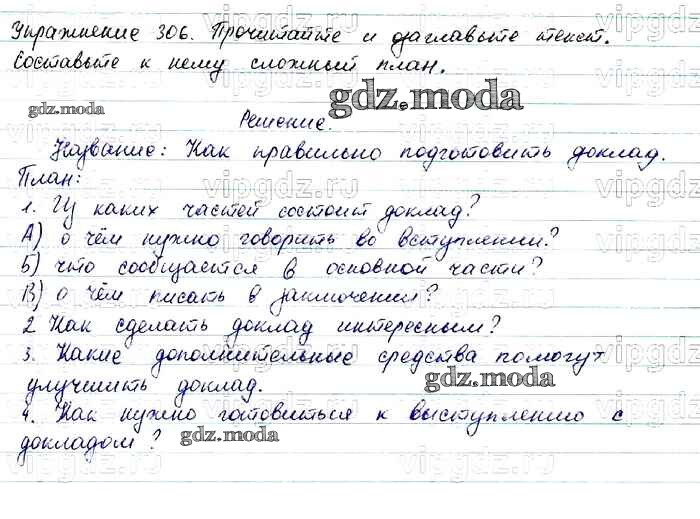 Упражнение 306. Прочитайте и озаглавьте текст.
Составьте к нему сложный план.
gdz.moda
gdz.moda
Решение.
Название: Как правильно подготовить доклад.
План:
1. Из каких частей состоит доклад?
А) о чём нужно говорить во вступлении?
Б) что сообщается в основной части?
В) о чём писать в заключении?
2 Как сделать доклад интересным?
3. Какие дополнительные средства помогут
улучшить доклад.
gdz.moda
4. Как нужно готовиться к выступлению с
докладом?
gdz.moda
vipgdz.ru